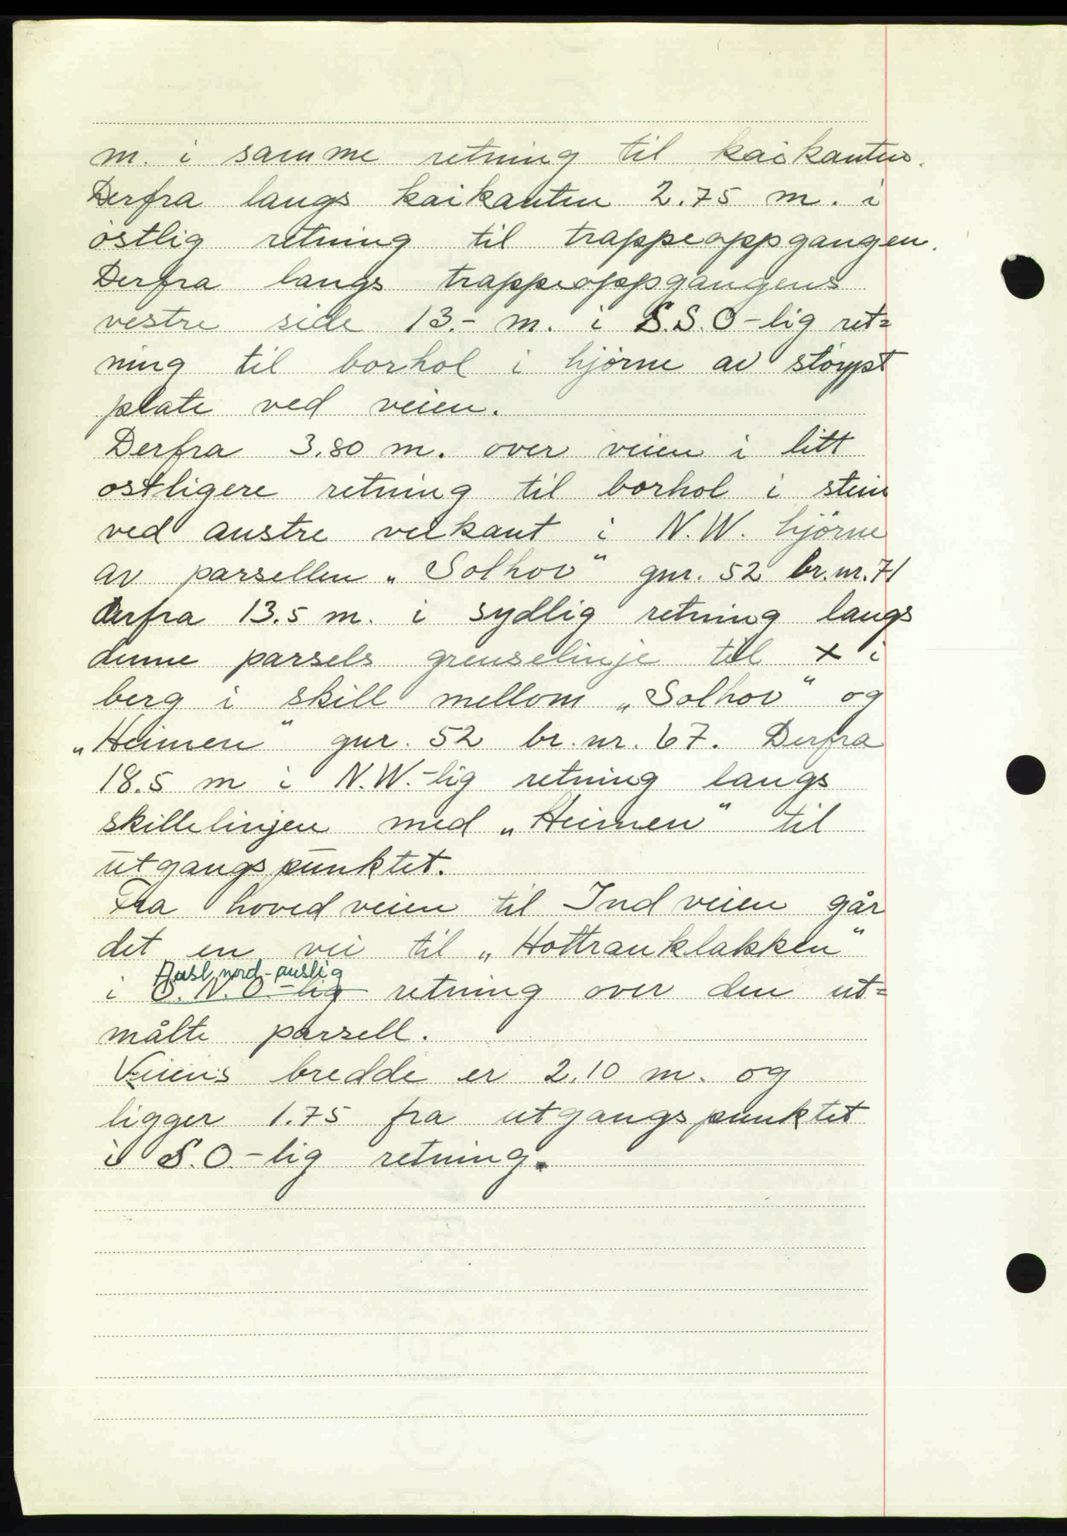 m. i samme retning til kaikanten.
Derfra langs kaikanten 2.75 m. i
östlig retning til trappeoppgangen.
Derfra langs trappeoppgangens
vestre side 13.- m. i S.S.O-lig ret=
ning til borhol i hjörne av stöypt
plate ved veien.
Derfra 3.80 m. over veien i litt
ostligere retning til borhol i stein
ved austre veikant i N.W. hjörne
av parsellen „Solhov" gnr. 52 br.nr. 71
derfra 13.5 m. i sydlig retning langs
denne parsels grenselinje til x i
berg i skill mellom „Solhov" og
„Heimen" gnr. 52 br. nr. 67. Derfra
18.5 m i N.W.-lig retning langs
skillelinjen med „Heimen" til
utgangspunktet.
Fra hovedveien til Indveien går
det en vei til „Hottranklakken"
Aust nord-austig
i O.N.O-lig retning over den ut=
målte parsell.
Veiens bredde er 2.10 m. og
ligger 1.75 fra utgangspunktet
i S.O.-lig retning.